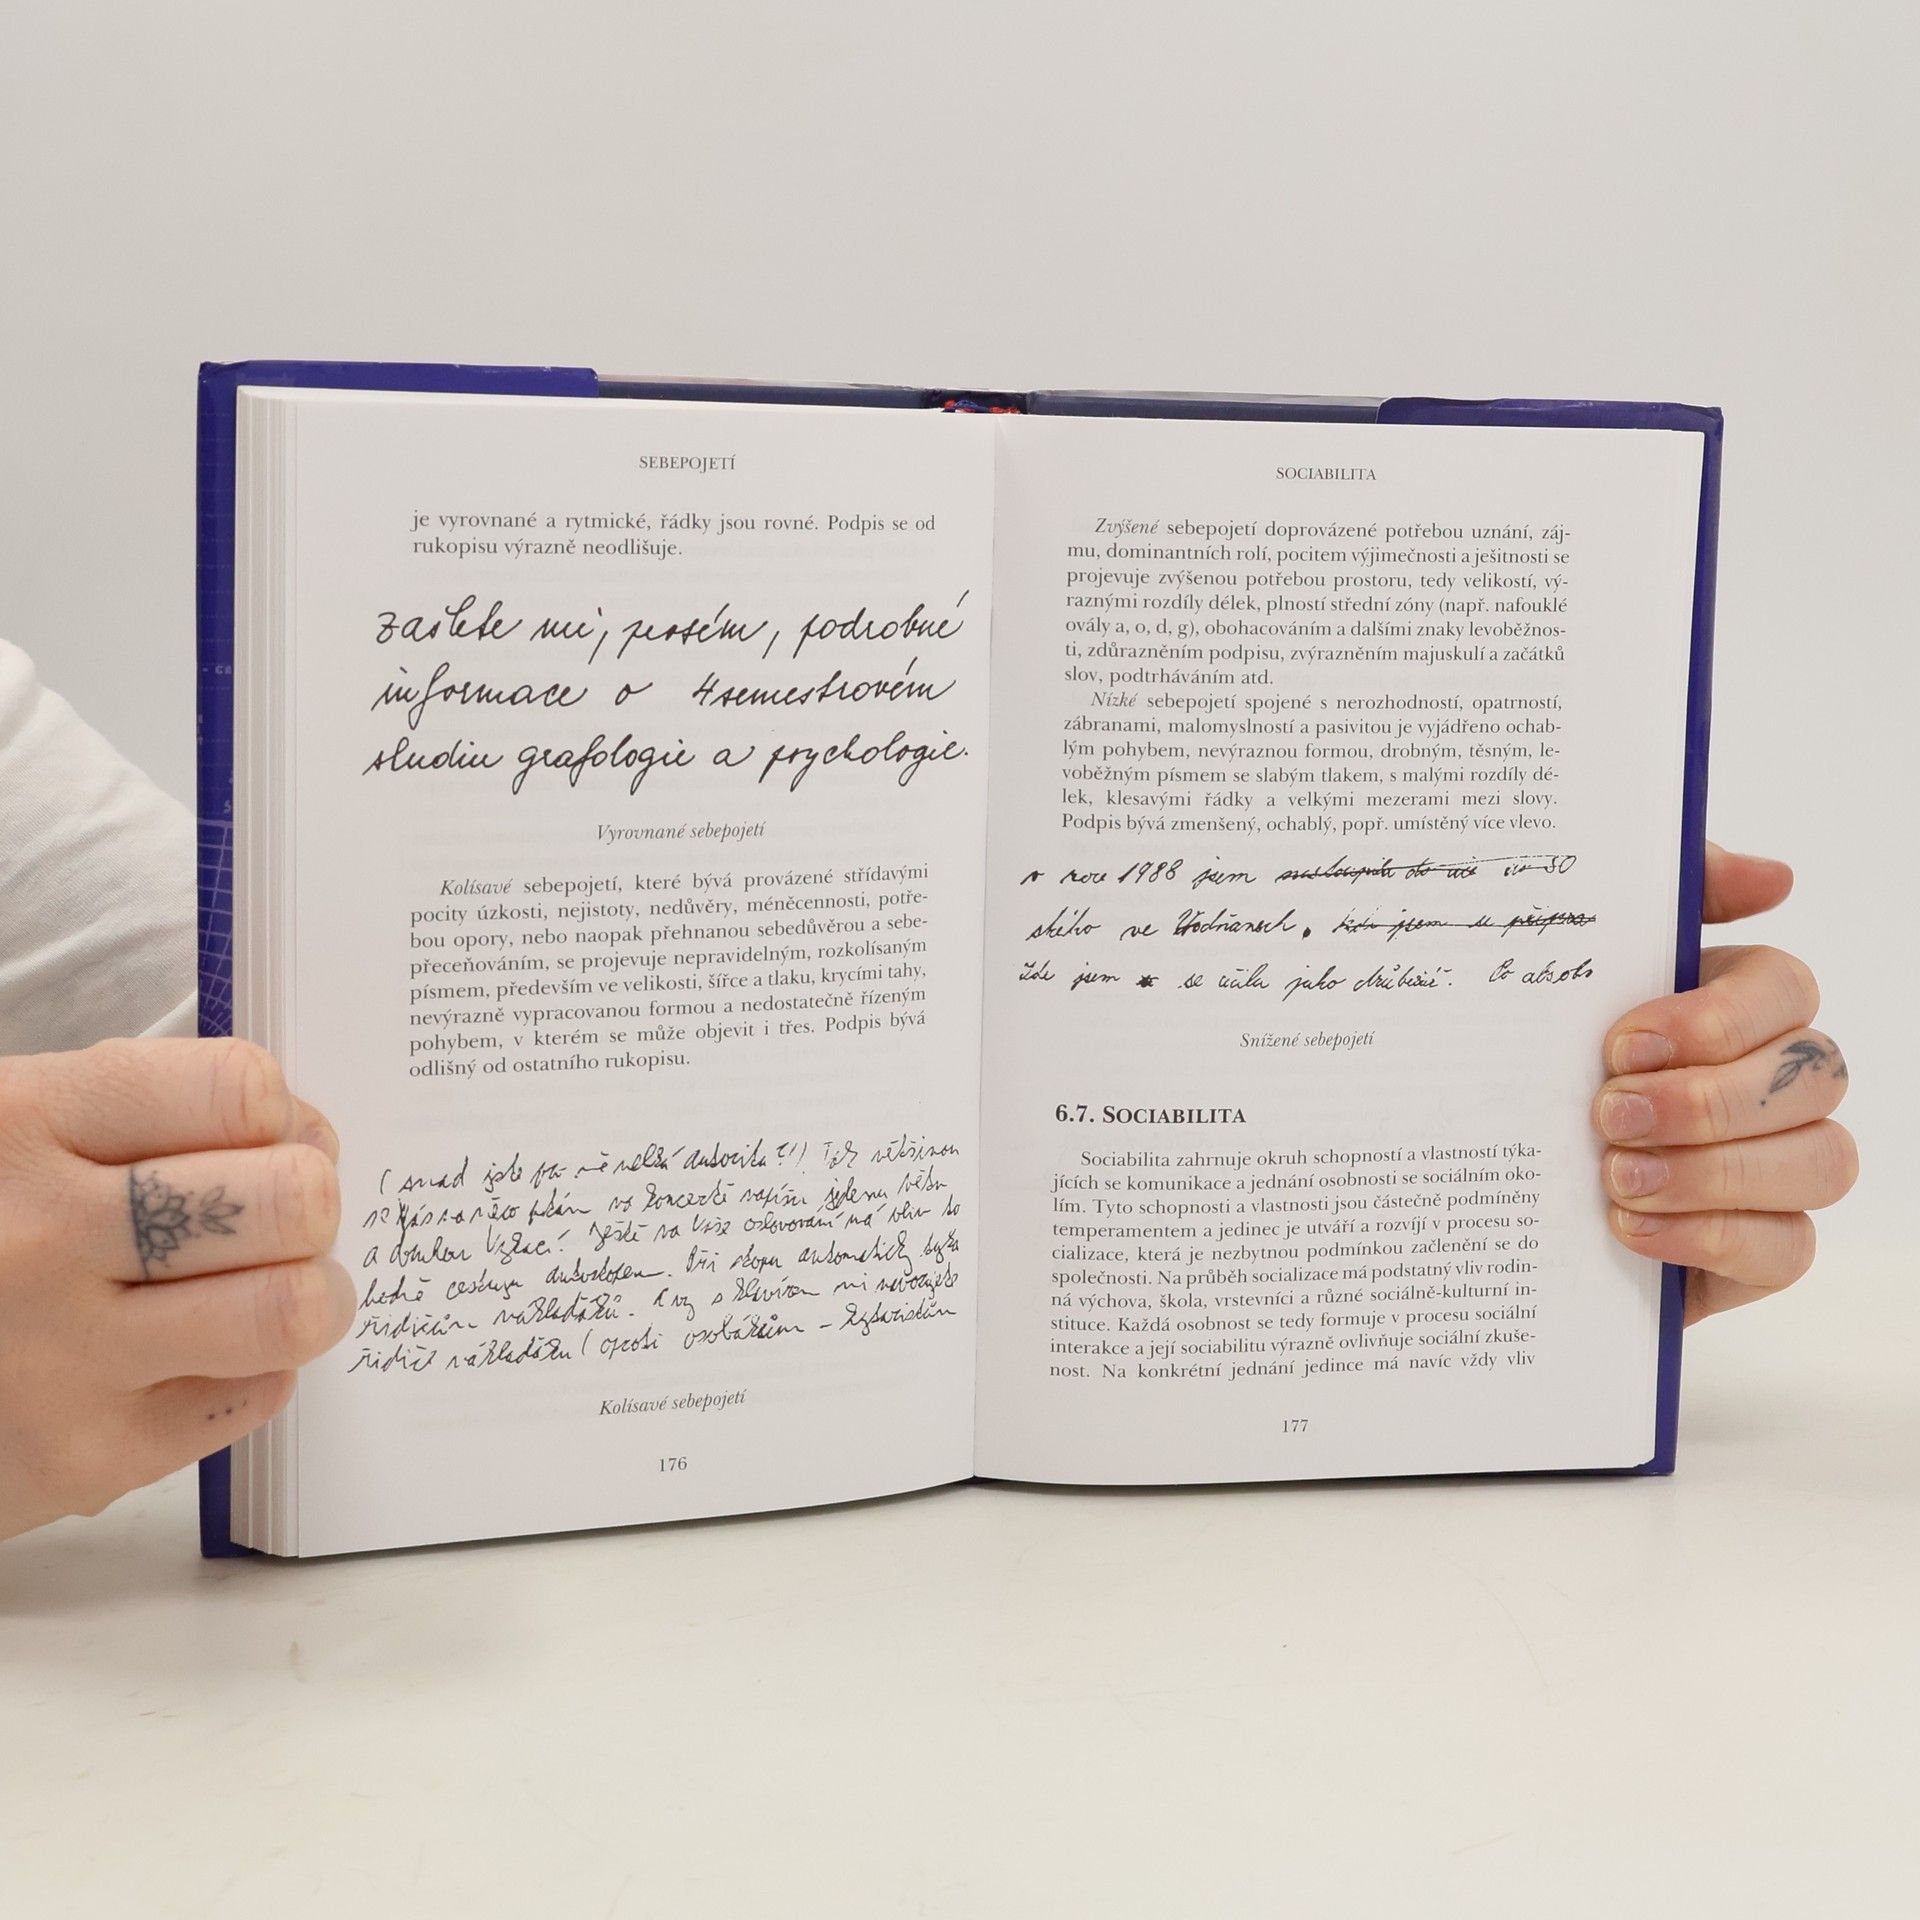 SEBEPOJETÍ
je vyrovnané a rytmické, řádky jsou rovné. Podpis se od
rukopisu výrazně neodlišuje.
Zašlete mi, prosím, podrobné
informace o 4semestrovém
studiu grafologie a psychologie.
Vyrovnané sebepojetí
Kolísavé sebepojetí, které bývá provázené střídavými
pocity úzkosti, nejistoty, nedůvěry, méněcennosti, potře-
bou opory, nebo naopak přehnanou sebedůvěrou a sebe-
přeceňováním, se projevuje nepravidelným, rozkolísaným
písmem, především ve velikosti, šířce a tlaku, krycími tahy,
nevýrazně vypracovanou formou a nedostatečně řízeným
pohybem, v kterém se může objevit i třes. Podpis bývá
odlišný od ostatního rukopisu.
(snad jste pro mě velká autorita?!) Tak většinou
na koncertě napíšu jedenu větu
a druhou Ještě na Vaše oslovování má vliv to
hodně cestuju autostopem. Při stopu automaticky
řidičům náklaďáků. A vy s klavírem mi
řidič náklaďáku (oproti osobákům –
Kolísavé sebepojetí
176
SOCIABILITA
Zvýšené sebepojetí doprovázené potřebou uznání, záj-
mu, dominantních rolí, pocitem výjimečnosti a ješitnosti se
projevuje zvýšenou potřebou prostoru, tedy velikostí, vý-
raznými rozdíly délek, plností střední zóny (např. nafouklé
ovály a, o, d, g), obohacováním a dalšími znaky levoběžnos-
ti, zdůrazněním podpisu, zvýrazněním majuskulí a začátků
slov, podtrháváním atd.
Nízké sebepojetí spojené s nerozhodností, opatrností,
zábranami, malomyslností a pasivitou je vyjádřeno ochab-
lým pohybem, nevýraznou formou, drobným, těsným, le-
voběžným písmem se slabým tlakem, s malými rozdíly dé-
lek, klesavými řádky a velkými mezerami mezi slovy.
Podpis bývá zmenšený, ochablý, popř. umístěný více vlevo.
v roce 1988 jsem nastoupila do
ského ve Vodňanech. Kde jsem se
Zde jsem se učila jako drůbežář. Po absolv
Snížené sebepojetí
6.7. SOCIABILITA
Sociabilita zahrnuje okruh schopností a vlastností týka-
jících se komunikace a jednání osobnosti se sociálním oko-
lím. Tyto schopnosti a vlastnosti jsou částečně podmíněny
temperamentem a jedinec je utváří a rozvíjí v procesu so-
cializace, která je nezbytnou podmínkou začlenění se do
společnosti. Na průběh socializace má podstatný vliv rodin-
ná výchova, škola, vrstevníci a různé sociálně-kulturní in-
stituce. Každá osobnost se tedy formuje v procesu sociální
interakce a její sociabilitu výrazně ovlivňuje sociální zkuše-
nost. Na konkrétní jednání jedince má navíc vždy vliv
177